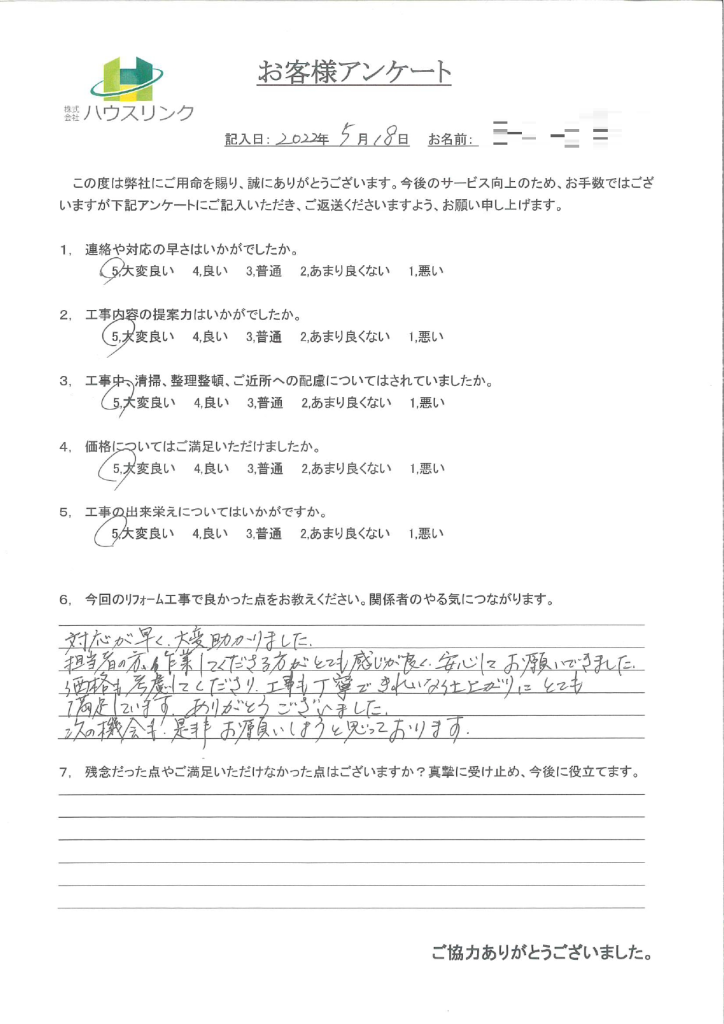 お客様アンケート
株式会社 ハウスリンク
記入日: 2022年 5月 18日 お名前:
この度は弊社にご用命を賜り、誠にありがとうございます。今後のサービス向上のため、お手数ではござ
いますが下記アンケートにご記入いただき、ご返送くださいますよう、お願い申し上げます。
1. 連絡や対応の早さはいかがでしたか。
5,大変良い 4,良い 3,普通 2,あまり良くない 1,悪い
2. 工事内容の提案力はいかがでしたか。
5,大変良い 4,良い 3,普通 2,あまり良くない 1,悪い
3. 工事中、清掃、整理整頓、ご近所への配慮についてはされていましたか。
5,大変良い 4,良い 3,普通 2,あまり良くない 1,悪い
4. 価格についてはご満足いただけましたか。
5,大変良い 4,良い 3,普通 2,あまり良くない 1,悪い
5. 工事の出来栄えについてはいかがですか。
5,大変良い 4,良い 3,普通 2,あまり良くない 1,悪い
6. 今回のリフォーム工事で良かった点をお教えください。関係者のやる気につながります。
対応が早く、大変助かりました。
担当者の方も作業してくださる方がとても感じが良く、安心してお願いできました。
価格も考慮してくださり、工事も丁寧できれいな仕上がりにとても
満足しています。ありがとうございました。
次の機会も是非お願いしようと思っております。
7. 残念だった点やご満足いただけなかった点はございますか？真摯に受け止め、今後に役立てます。
ご協力ありがとうございました。